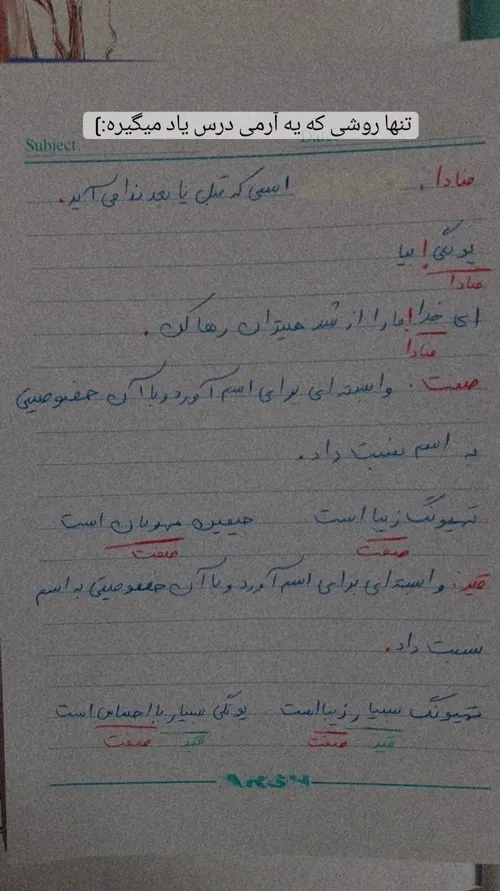 تنها روشی که یه آرمی درس یاد میگیره:)
Subject.
منادا: اسمی که قبل یا بعد ندا می آید.
یونگی! بیا
منادا
ای خدا! ما را از شر هیتران رها کن.
منادا
صفت: وابسته ای برای اسم آورد و با آن خصوصیتی
به اسم نسبت داد.
تهیونگ زیبا است جیمین مهربان است
صفت صفت
قید: وابسته ای برای اسم آورد و با آن خصوصیتی به اسم
نسبت داد.
تهیونگ بسیار زیبا است یونگی بسیار با احساس است
قید صفت قید صفت